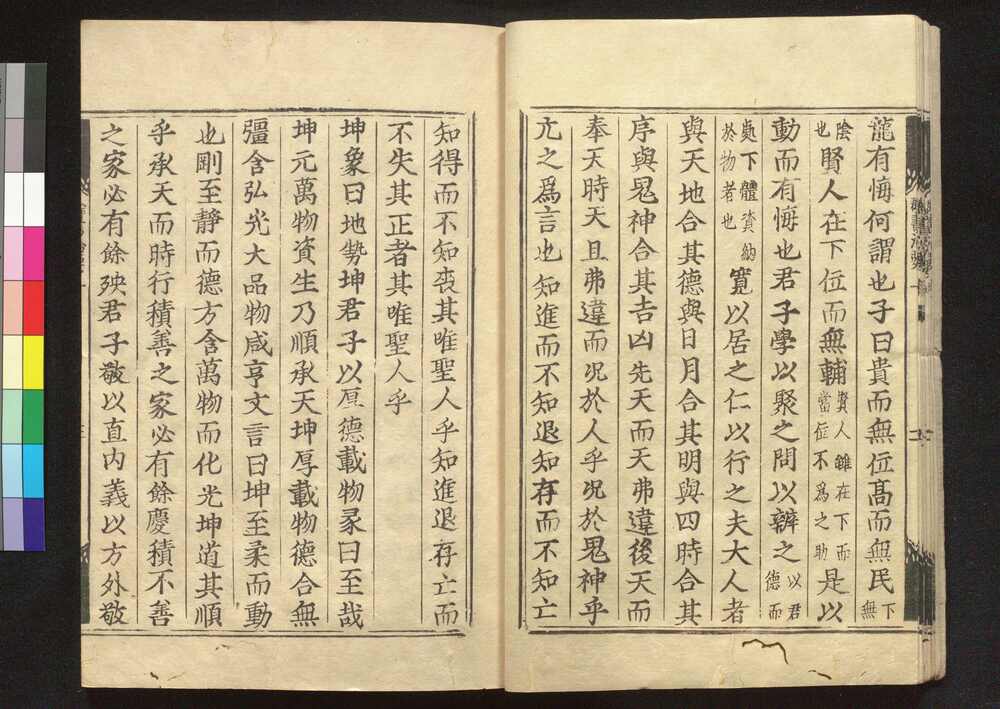 龍有悔何謂也子曰貴而無位髙而無民下無
陰也賢人在下位而無輔賢人雖在下而當位不爲之助是以
動而有悔也君子學以聚之問以辯之以君德而
處下體資納於物者也寛以居之仁以行之夫大人者
與天地合其德與日月合其明與四時合其
序與鬼神合其吉凶先天而天弗違後天而
奉天時天且弗違而况於人乎况於鬼神乎
亢之爲言也知進而不知退知存而不知亡
知得而不知喪其唯聖人乎知進退存亡而
不失其正者其唯聖人乎
坤象曰地勢坤君子以厚德載物彖曰至哉
坤元萬物資生乃順承天坤厚載物德合無
彊含弘光大品物咸亨文言曰坤至柔而動
也剛至静而德方含萬物而化光坤道其順
乎承天而時行積善之家必有餘慶積不善
之家必有餘殃君子敬以直内義以方外敬